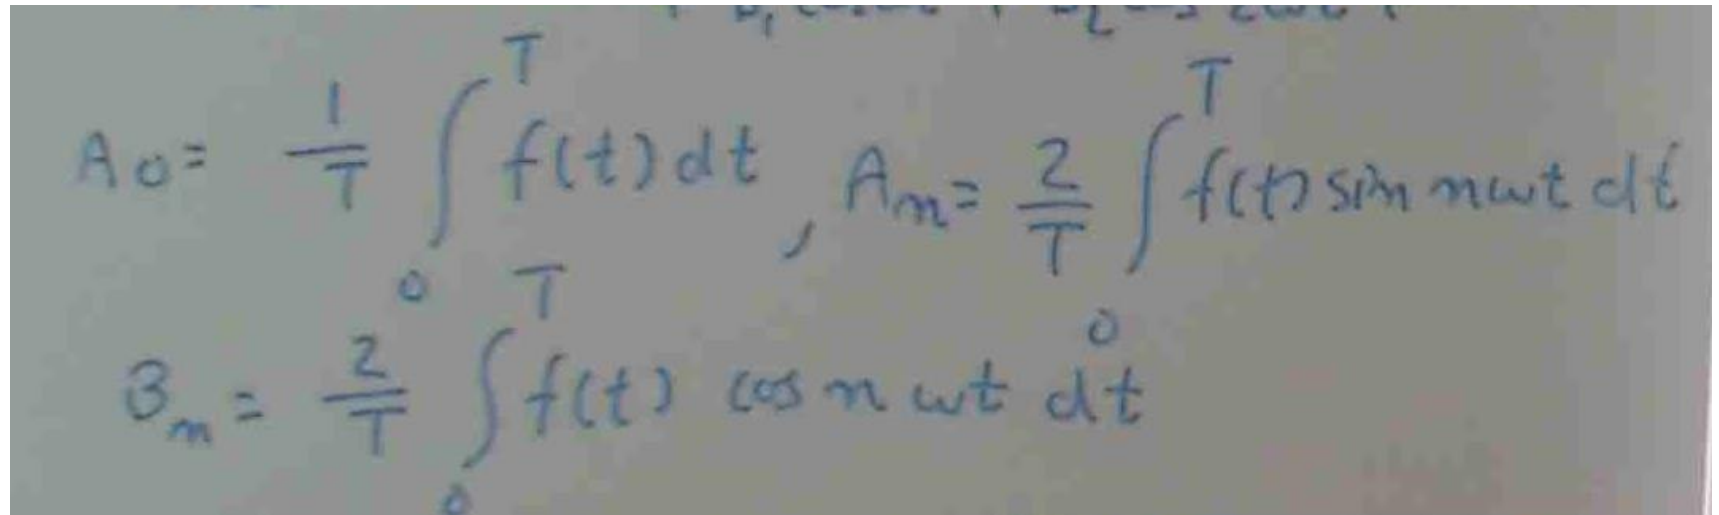 A₀ = 1/T ∫₀ᵀ f(t) dt , Aₙ = 2/T ∫₀ᵀ f(t) sin nωt dt
Bₙ = 2/T ∫₀ᵀ f(t) cos nωt dt